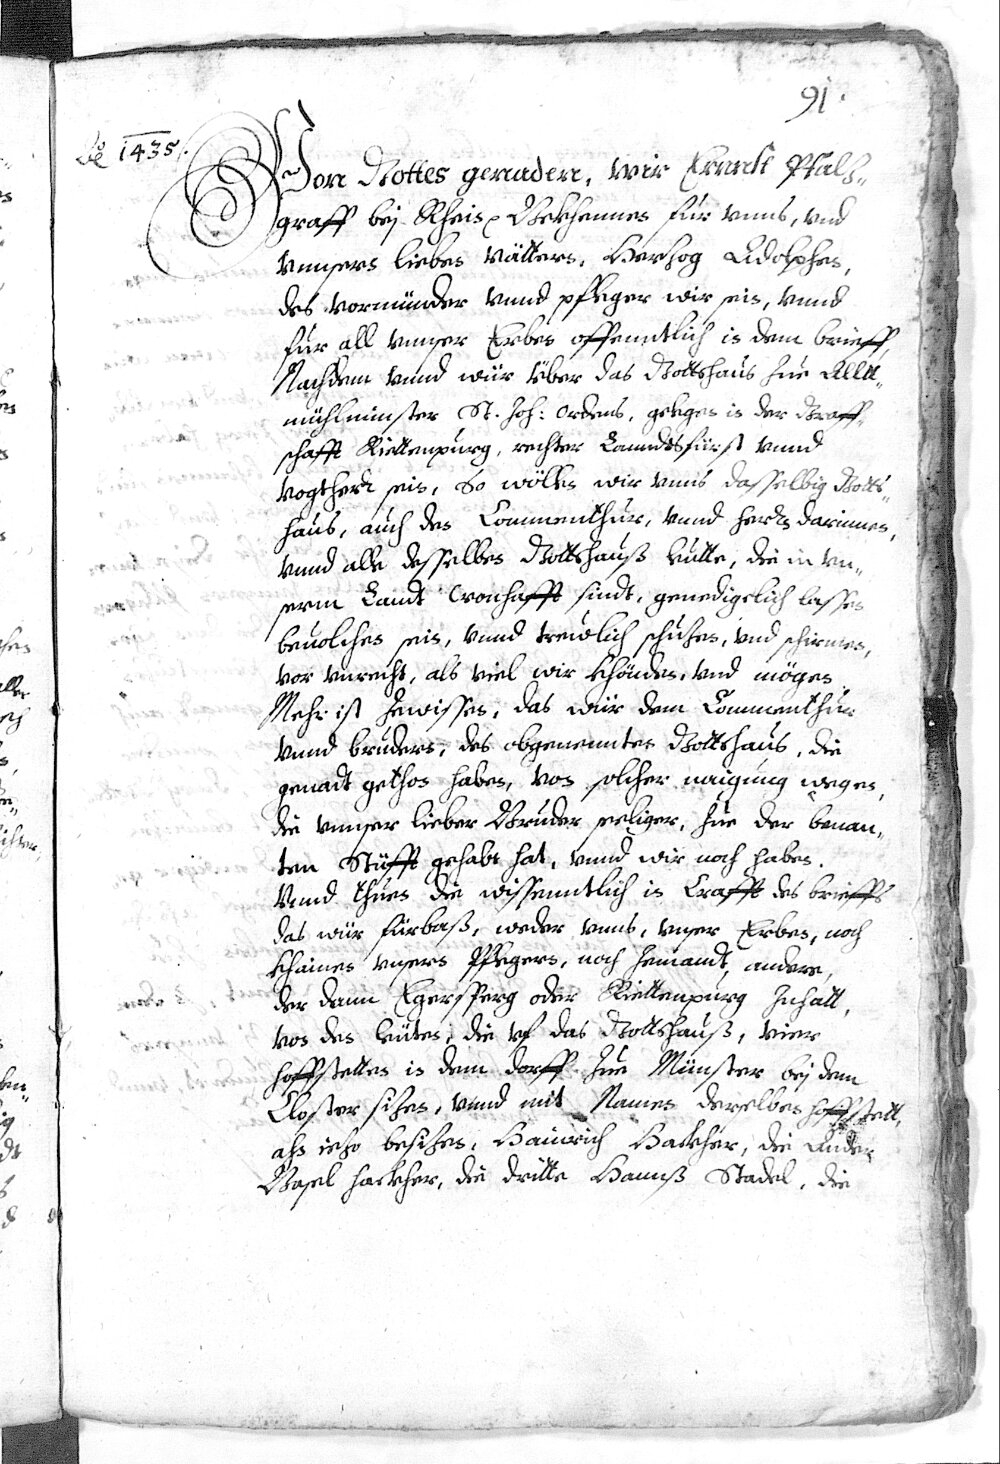 91.
De 1435.
Von Gottes genaden, wir Ernnst Pfalz„
graff bej Rhein, Bekhennen für vnns, vnd
vnnsers lieben vätters, Herzog Adolphen,
des vormünder vnnd pfleger wir sein, vnnd
für all vnnser Erben offenntlich in dem brieff,
Nachdem vnnd wür über das Gottshaus zue Allt„
mühlminster St. Joh: Ordens, gelegen in der Graff„
schafft Riettenpurg, rechter Lanndtsfürst vnnd
vogtherr sein, So wöllen wir vnns dasselbig Gotts„
haus, auch den Commenthur, vnnd herrn darinnen,
vnnd alle desselben Gottshauß leütte, die in vn„
serm Landt wonhafft sindt, genedigclich lassen
beuolchen sein, vnnd treülich schuzen, vnd schirmen,
vor vnrecht, als viel wir khönden, vnd mögen.
Mehr ist zewissen, das wür dem Commenthur
vnnd brudern, des obgenennten Gottshaus, die
genadt gethon haben, von solcher naigung wegen,
die vnnser lieber Bruder seeliger, zue der benan„
ten Stüfft gehabt hat, vnnd wir noch haben.
Vnnd thuen die wissenntlich in Crafft des brieffs
das wür fürbaß, weder vnns, vnser Erben, noch
khainen vnsern Pflegern, noch jemandt, andern,
der dann Egersperg oder Riettenpurg Inhatt,
von den leüten, die vf das Gottshauß, vier
hoffstetten in dem dorff zue Münster bej dem
Closter sizen, vnnd mit Namen derselben hoffstett,
alß iezo besizen, Hainrich Hackher, die Ander
Vasel hackher, die dritte Hannß Stadel, die